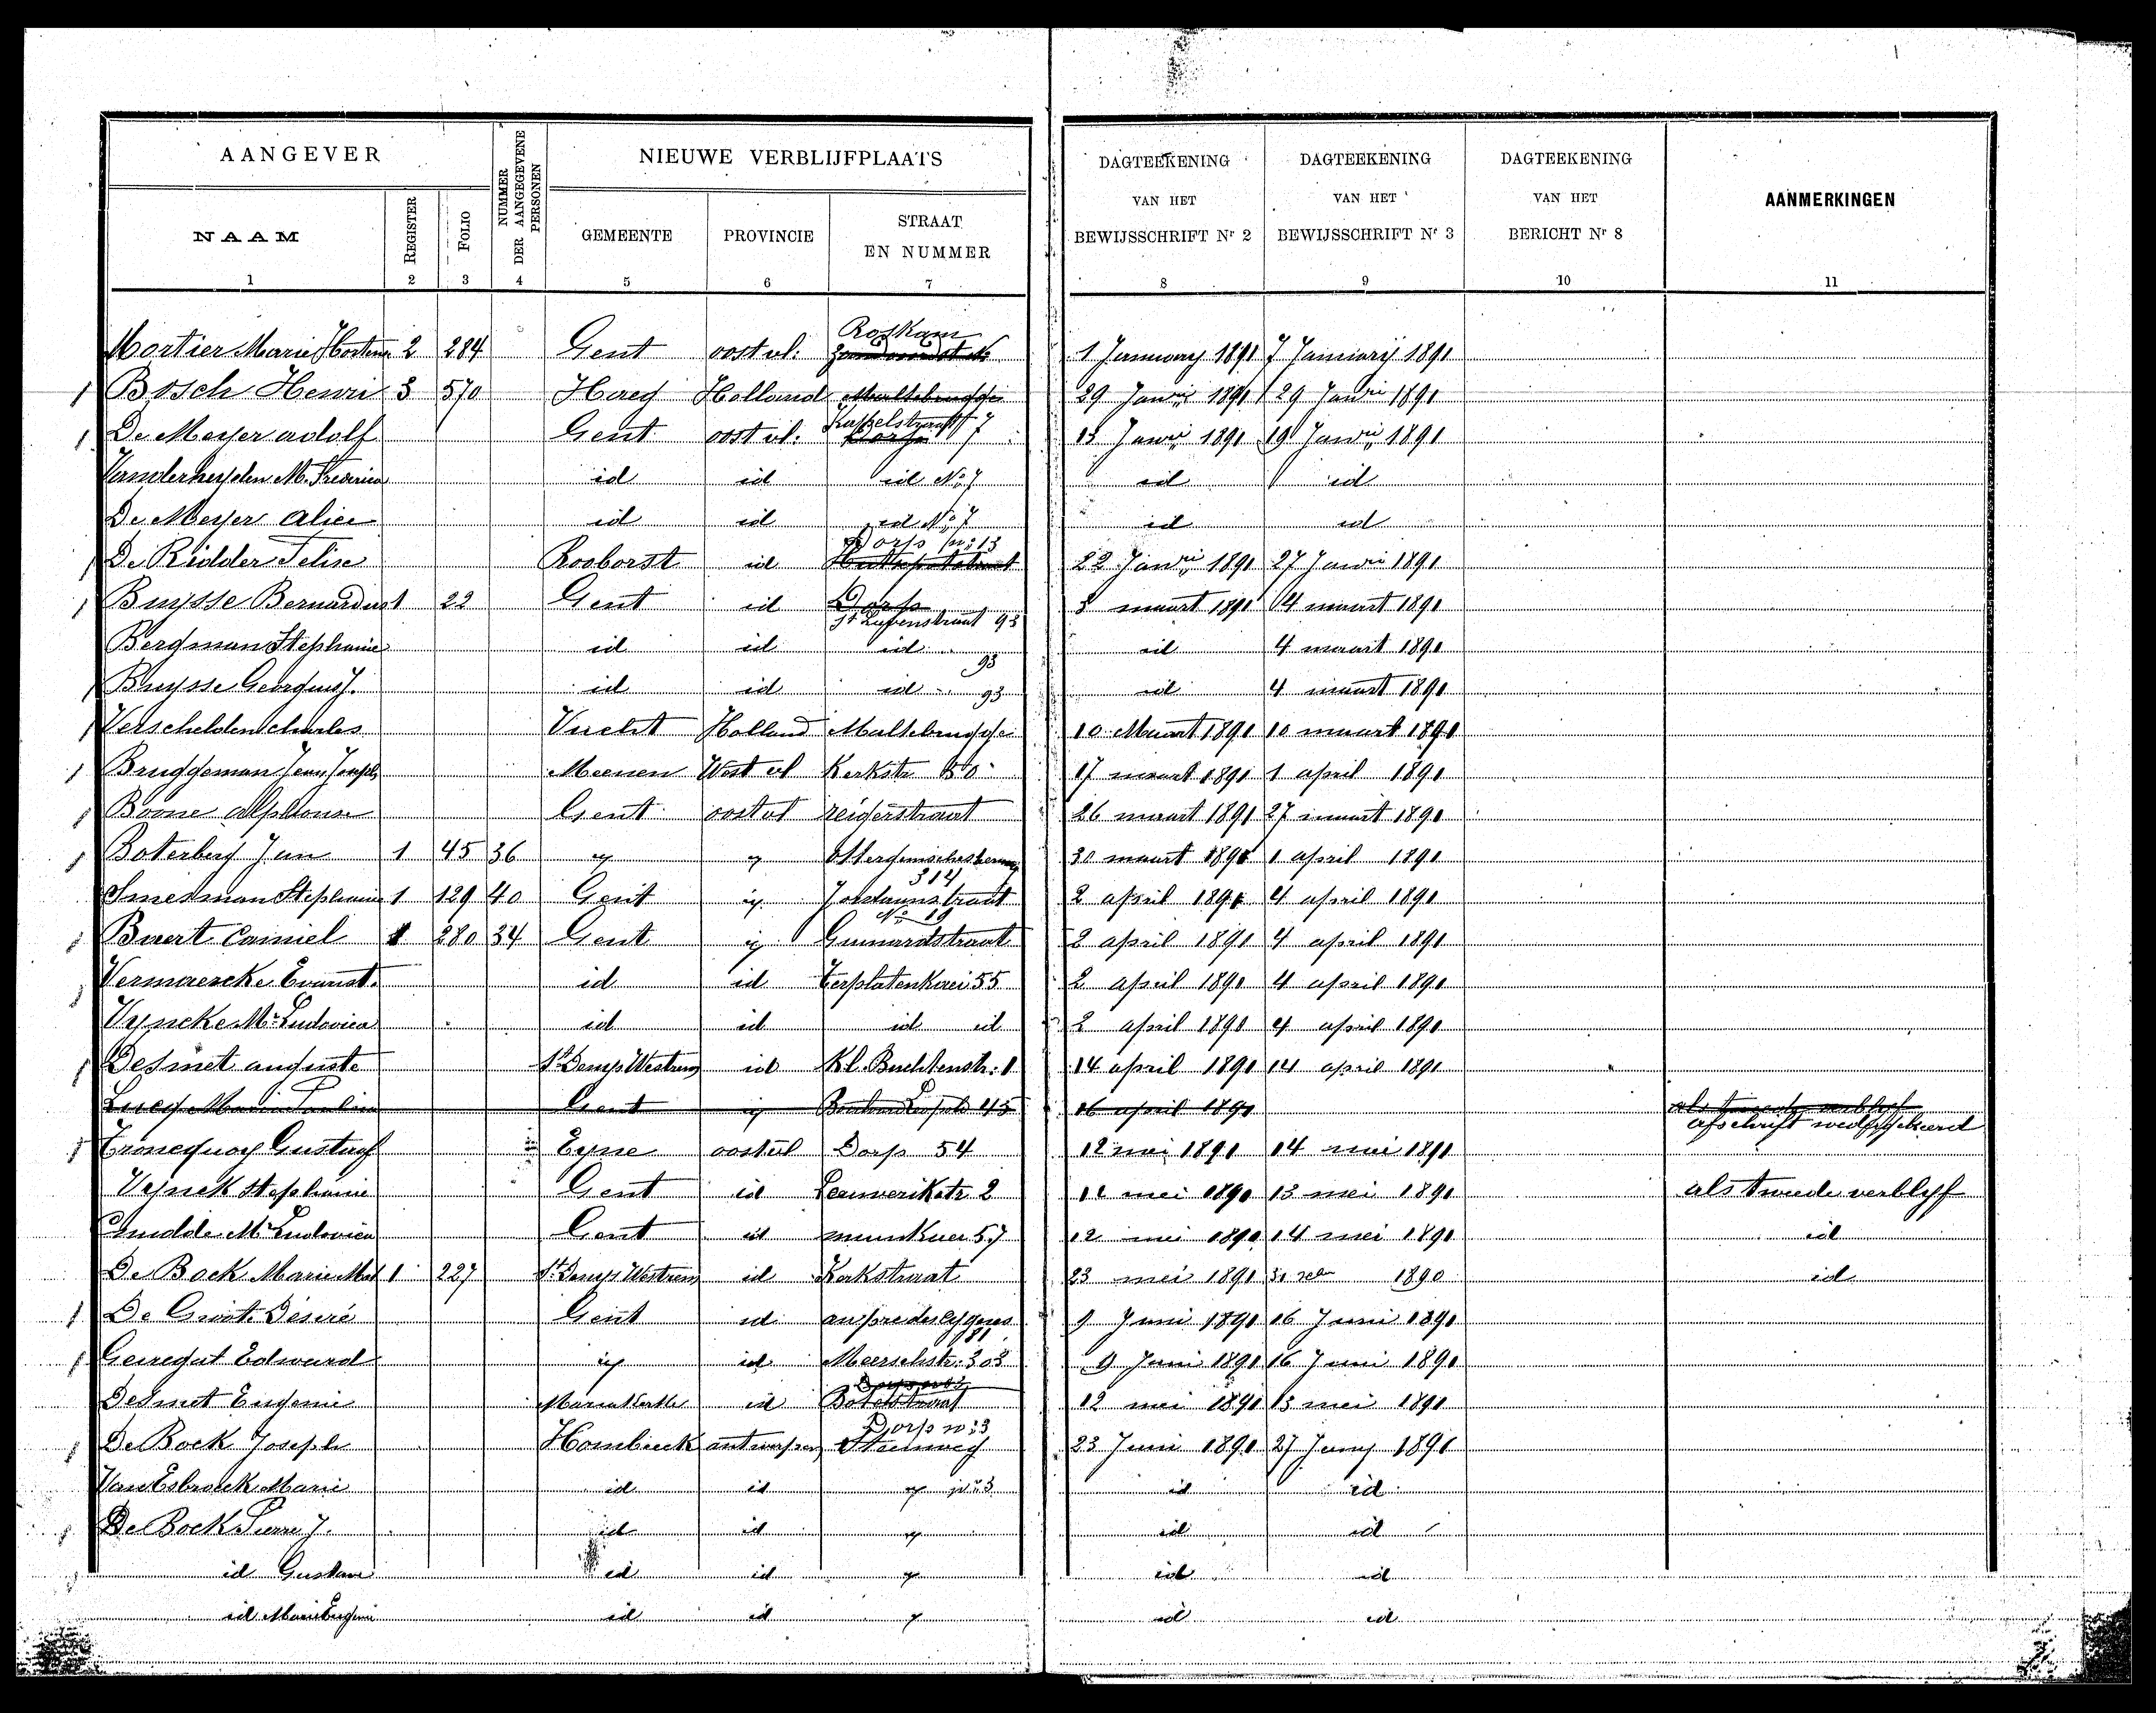 AANGEVER NUMMER DER AANGEGEVENE PERSONEN NIEUWE VERBLIJFPLAATS DAGTEEKENING VAN HET BEWIJSSCHRIFT Nr 2 DAGTEEKENING VAN HET BEWIJSSCHRIFT Nr 3 DAGTEEKENING VAN HET BERICHT Nr 8 AANMERKINGEN
NAAM REGISTER FOLIO GEMEENTE PROVINCIE STRAAT EN NUMMER
1 2 3 4 5 6 7 8 9 10 11
Roskam
Mortier Marie 2 284 Gent oost vl: 1 January 1891 7 Januarij 1891
Bosch Henri 3 570 Haeg Holland Maltebrugge 29 Janrij 1891 29 Janri 1891
De Meyer adolf Gent oost vl. Kappelstraat 7 13 Janri 1891 19 Janri 1891
Vanderheyden M. id id id No 7 id id
De Meyer Alice id id id No 7 id id
Dorp no: 13
De Ridder Felise Rooborst id 22 Janri 1891 27 Janri 1891
Buysse Bernardus 1 22 Gent id Dorp 3 maart 1891 4 maart 1891
St Lievenstraat 93
Bergman Stephanie id id id 93 id 4 maart 1891
Buysse Georgius J. id id id 93 id 4 maart 1891
Verschelden Charles Vucht Holland Maltebrugge 10 Maart 1891 10 maart 1891
Bruggeman Jean Joseph Meenen West vl Kerkstr 50 17 maart 1891 1 april 1891
Boone alphonse Gent oost vl reigerstraat 26 maart 1891 27 maart 1891
Boterberg Jan 1 45 36 30 maart 1891 1 april 1891
314
Smesman Stephanie 1 129 40 Gent 2 april 1891 4 april 1891
No 19
Baert Camiel 1 280 34 Gent Guinardstraat 2 april 1891 4 april 1891
Vermaercke Evarist. id id Terplatenkaei 55 2 april 1891 4 april 1891
Vyncke Ma Ludovica id id id id 2 april 1891 4 april 1891
Desmet auguste St Denys Westrem id Kl. Buchtenstr: 1 14 april 1891 14 april 1891
Lucy Marie Gent 45 16 april 1891 als tweede verblyf
afschrift
Troncquoy Gustaaf Eyne oost vl Dorp 54 12 mei 1891 14 mei 1891
Vynck Stephanie Gent id Leeuwerikstr 2 11 mei 1891 13 mei 1891 als tweede verblyf
Ma Ludovica Gent id muinkaei 57 12 mei 1891 14 mei 1891 id
De Bock Marie 1 227 St Denys Westrem id Kerkstraat 23 mei 1891 1890 id
De Groote Désiré Gent id 9 Juni 1891 16 Juni 1891
181
Geiregat Edward id Meerschstr: 303 9 Juni 1891 16 Juni 1891
Desmet Eugenie id 12 mei 1891 13 mei 1891
Dorp no: 3
De Bock Joseph Hombeeck antwerpen Steenweg 23 Juni 1891 27 Juny 1891
Van Esbroeck Marie id id no 3 id id
De Bock Pierre J. id id id id
id Gustave id id id id
id Marie Eugenie id id id id